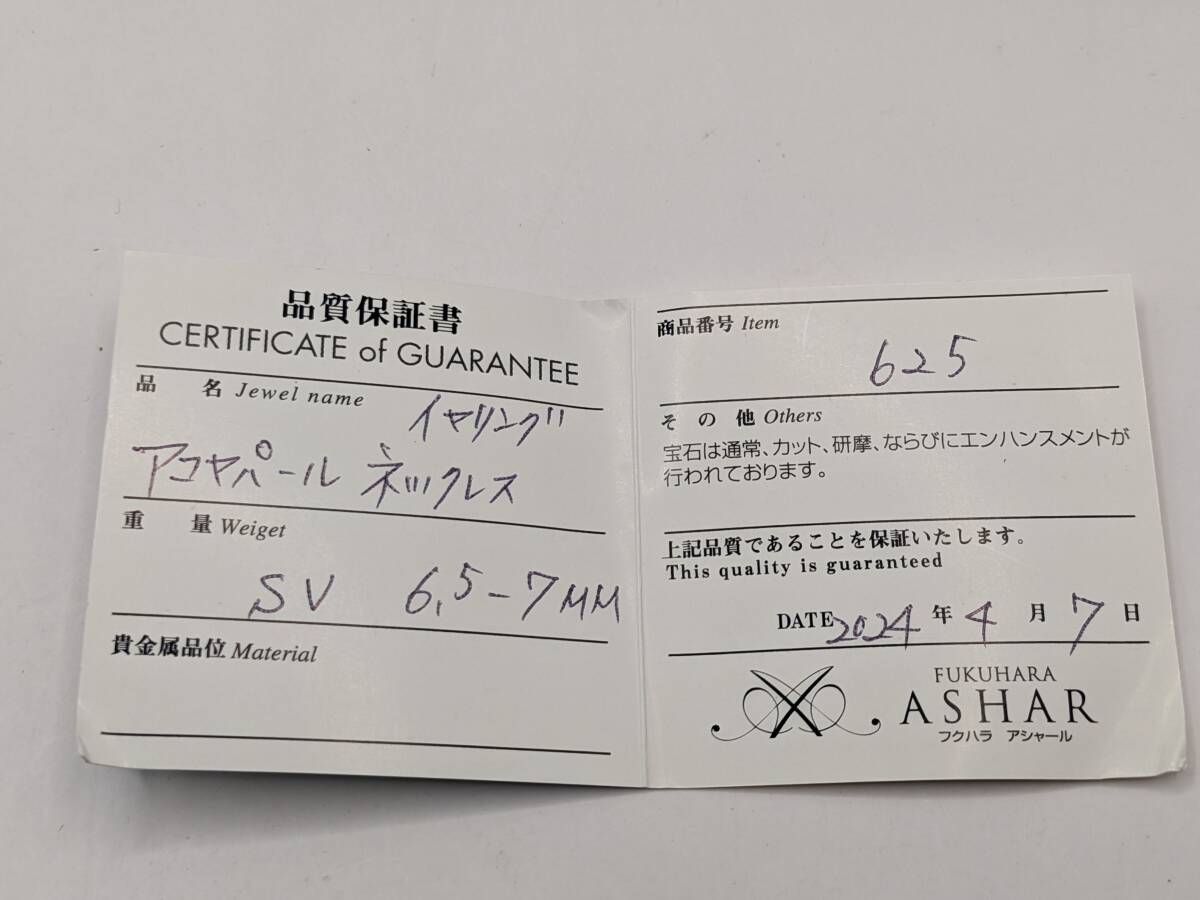 品質保証書
CERTIFICATE of GUARANTEE
品 名 Jewel name
イヤリング
アコヤパール ネックレス
重 量 Weiget
SV 6.5-7MM
貴金属品位 Material
商品番号 Item
625
そ の 他 Others
宝石は通常、カット、研摩、ならびにエンハンスメントが
行われております。
上記品質であることを保証いたします。
This quality is guaranteed
DATE 2024 年 4 月 7 日
FUKUHARA
ASHAR
フクハラ アシャール